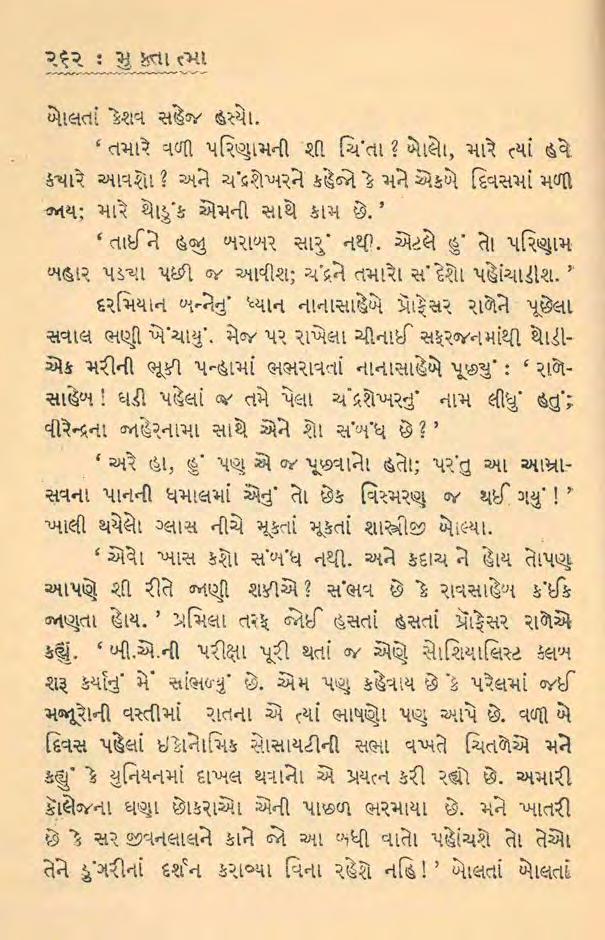 ૨૬૨ : મુ ક્તા ત્મા
બોલતાં કેશવ સહેજ હસ્યો.
‘ તમારે વળી પરિણામની શી ચિંતા ? બોલો, મારે ત્યાં હવે
ક્યારે આવશો ? અને ચંદ્રશેખરને કહેજો કે મને એકબે દિવસમાં મળી
જાય; મારે થોડુંક એમની સાથે કામ છે. ’
‘ તાઈને હજુ બરાબર સારું નથી. એટલે હું તો પરિણામ
બહાર પડ્યા પછી જ આવીશ; ચંદ્રને તમારો સંદેશો પહોંચાડીશ. ’
દરમિયાન બન્નેનું ધ્યાન નાનાસાહેબે પ્રોફેસર રાળેને પૂછેલા
સવાલ ભણી ખેંચાયું. મેજ પર રાખેલા ચીનાઈ સફરજનમાંથી થોડી-
એક મરીની ભૂકી પન્હામાં ભભરાવતાં નાનાસાહેબે પૂછ્યું : ‘ રાળે-
સાહેબ ! ઘડી પહેલાં જ તમે પેલા ચંદ્રશેખરનું નામ લીધું હતું;
વીરેન્દ્રના જાહેરનામા સાથે એને શો સંબંધ છે ? ’
‘ અરે હા, હું પણ એ જ પૂછવાનો હતો; પરંતુ આ આમ્રા-
સવના પાનની ધમાલમાં એનું તો છેક વિસ્મરણ જ થઈ ગયું ! ’
ખાલી થયેલો ગ્લાસ નીચે મૂકતાં મૂકતાં શાસ્ત્રીજી બોલ્યા.
‘ એવો ખાસ કશો સંબંધ નથી. અને કદાચ ને હોય તોપણ
આપણે શી રીતે જાણી શકીએ ? સંભવ છે કે રાવસાહેબ કંઈક
જાણતા હોય. ’ પ્રમિલા તરફ જોઈ હસતાં હસતાં પ્રૉફેસર રાળેએ
કહ્યું. ‘ બી.એ.ની પરીક્ષા પૂરી થતાં જ એણે સોશિયાલિસ્ટ ક્લબ
શરૂ કર્યાનું મેં સાંભળ્યું છે. એમ પણ કહેવાય છે કે પરેલમાં જઈ
મજૂરોની વસ્તીમાં રાતના એ ત્યાં ભાષણો પણ આપે છે. વળી બે
દિવસ પહેલાં ઇકોનોમિક સોસાયટીની સભા વખતે ચિતળેએ મને
કહ્યું કે યુનિયનમાં દાખલ થવાનો એ પ્રયત્ન કરી રહ્યો છે. અમારી
કૉલેજના ઘણા છોકરાઓ એની પાછળ ભરમાયા છે. મને ખાતરી
છે કે સર જીવનલાલને કાને જો આ બધી વાતો પહોંચશે તો તેઓ
તેને ડુંગરીનાં દર્શન કરાવ્યા વિના રહેશે નહિ ! ’ બોલતાં બોલતાં